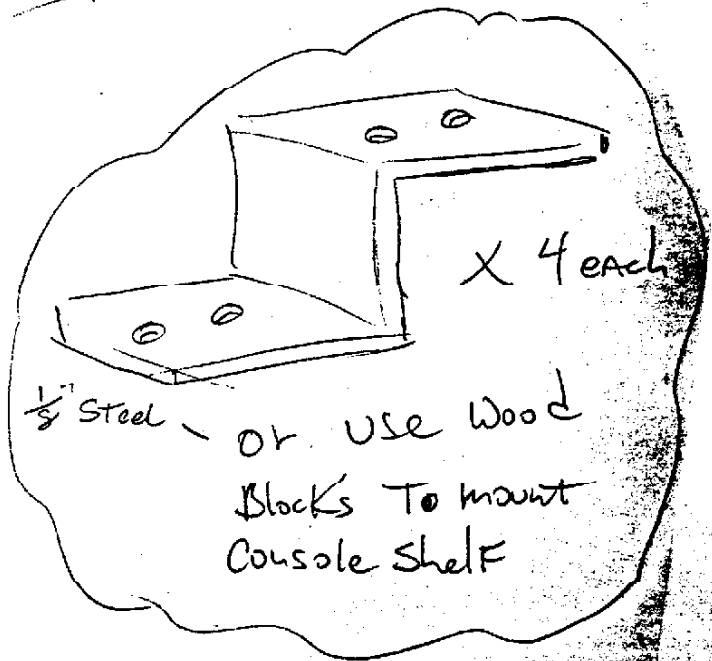 X 4 each
1/8" Steel - or use Wood
Blocks To mount
Console Shelf